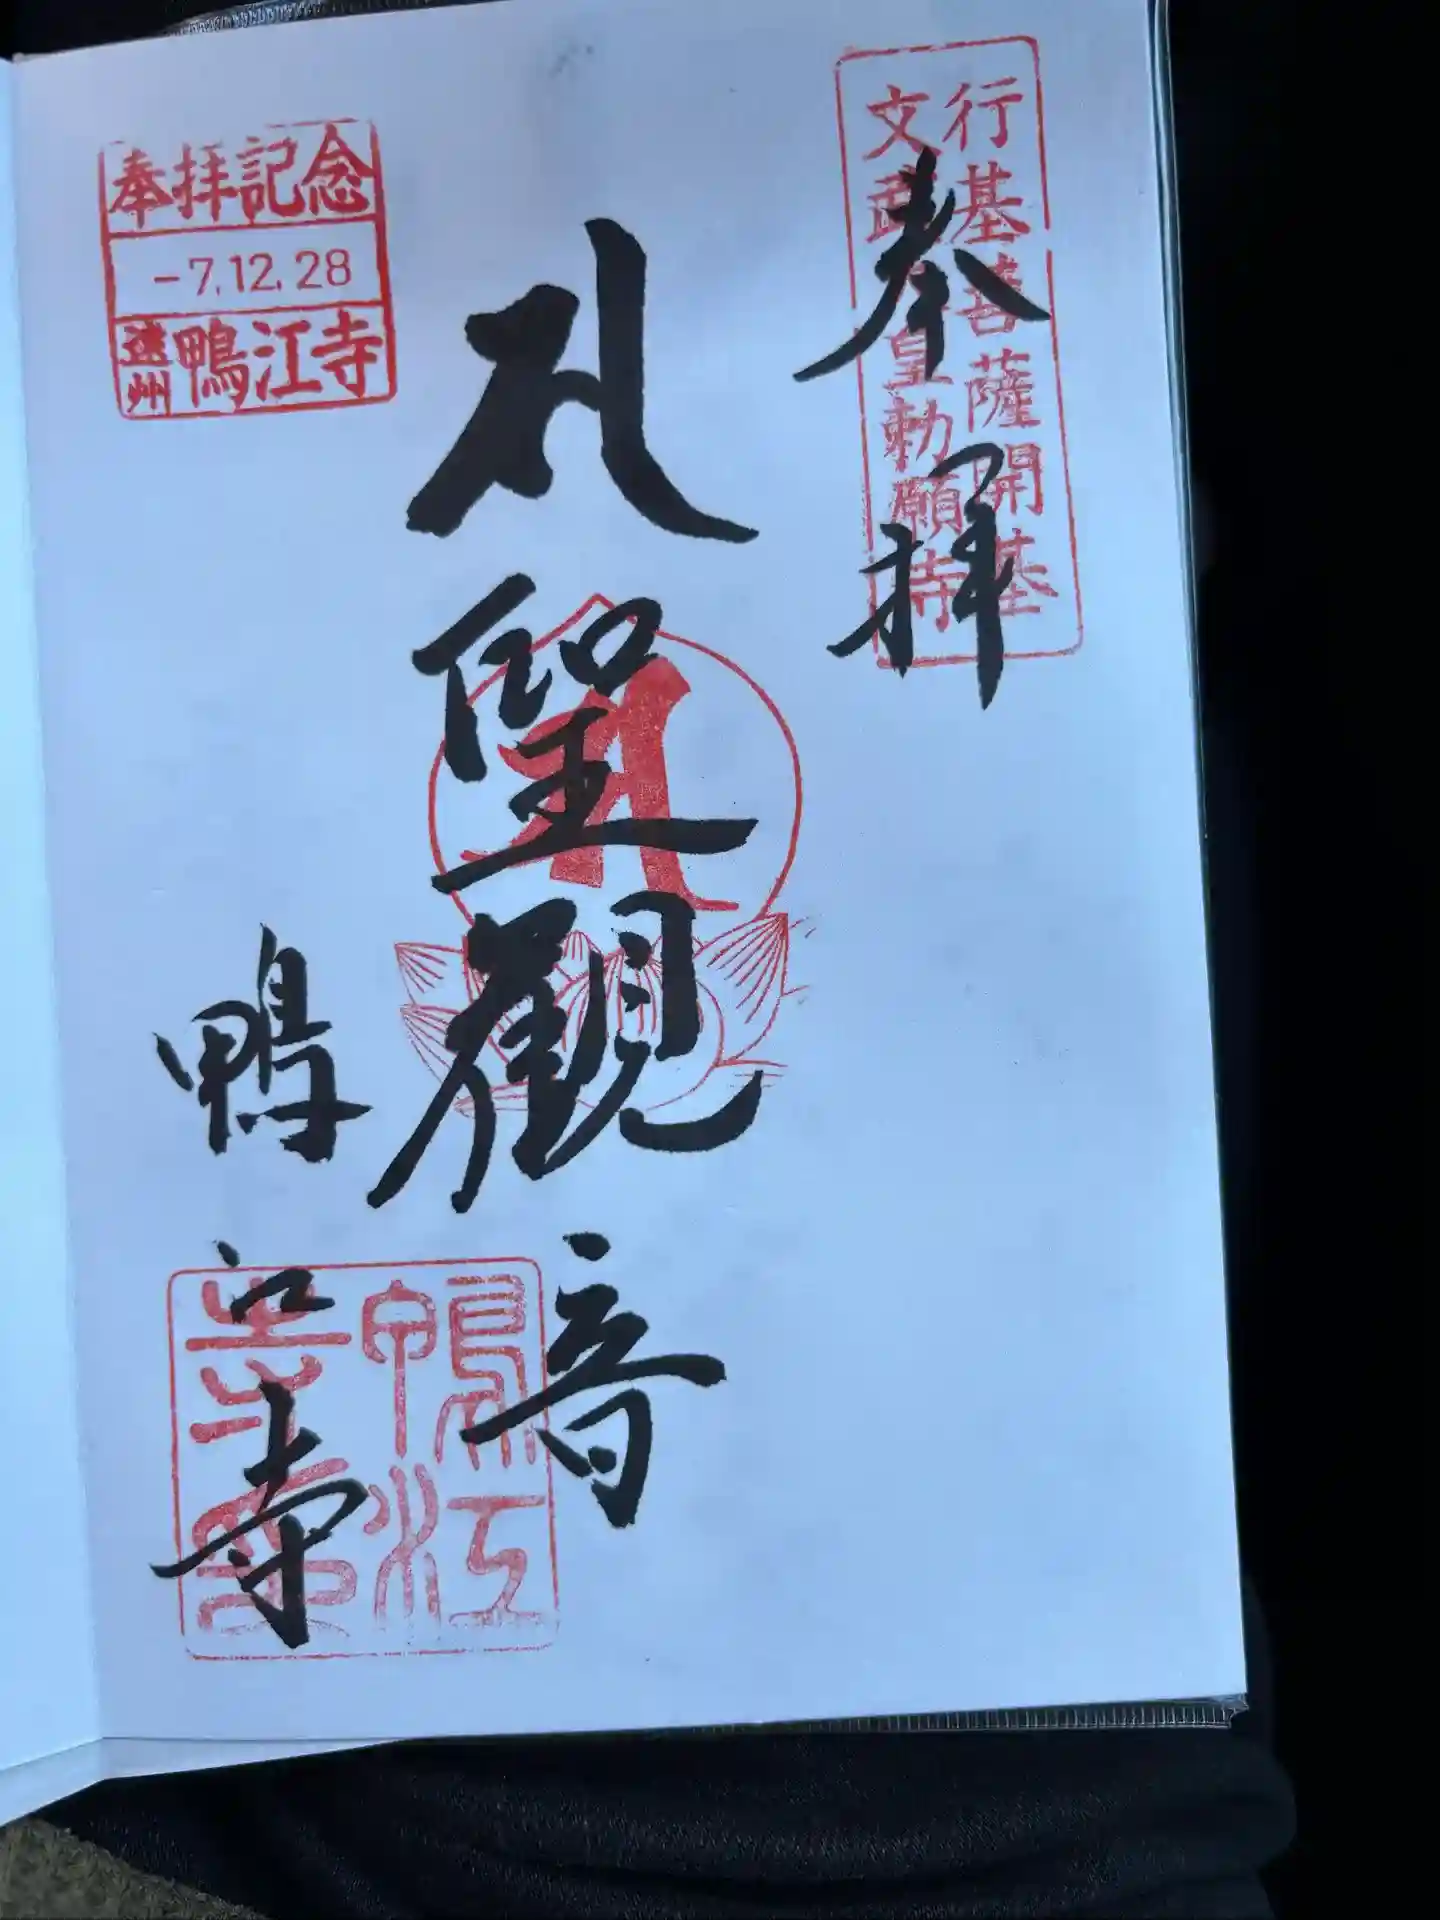 行基菩薩開基
文武天皇勅願寺
奉拝
聖觀音
奉拝記念
-7.12.28
遠州 鴨江寺
鴨江寺
鴨江